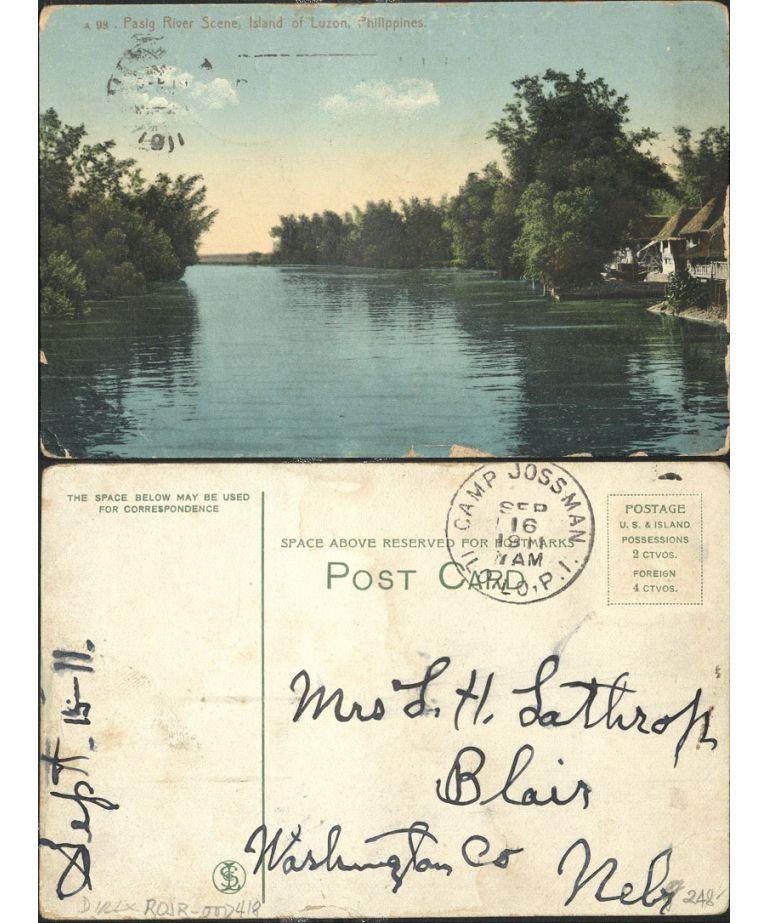 A 98. Pasig River Scene, Island of Luzon, Philippines.
1911
THE SPACE BELOW MAY BE USED
FOR CORRESPONDENCE
SPACE ABOVE RESERVED FOR POSTMARKS
POST CARD
CAMP JOSSMAN
SEP
16
1911
AM
ILOILO, P.I.
POSTAGE
U. S. & ISLAND
POSSESSIONS
2 CTVOS.
FOREIGN
4 CTVOS.
Sept. 15-11.
Mrs L. H. Lathrop
Blair
Washington Co
Nebr
248